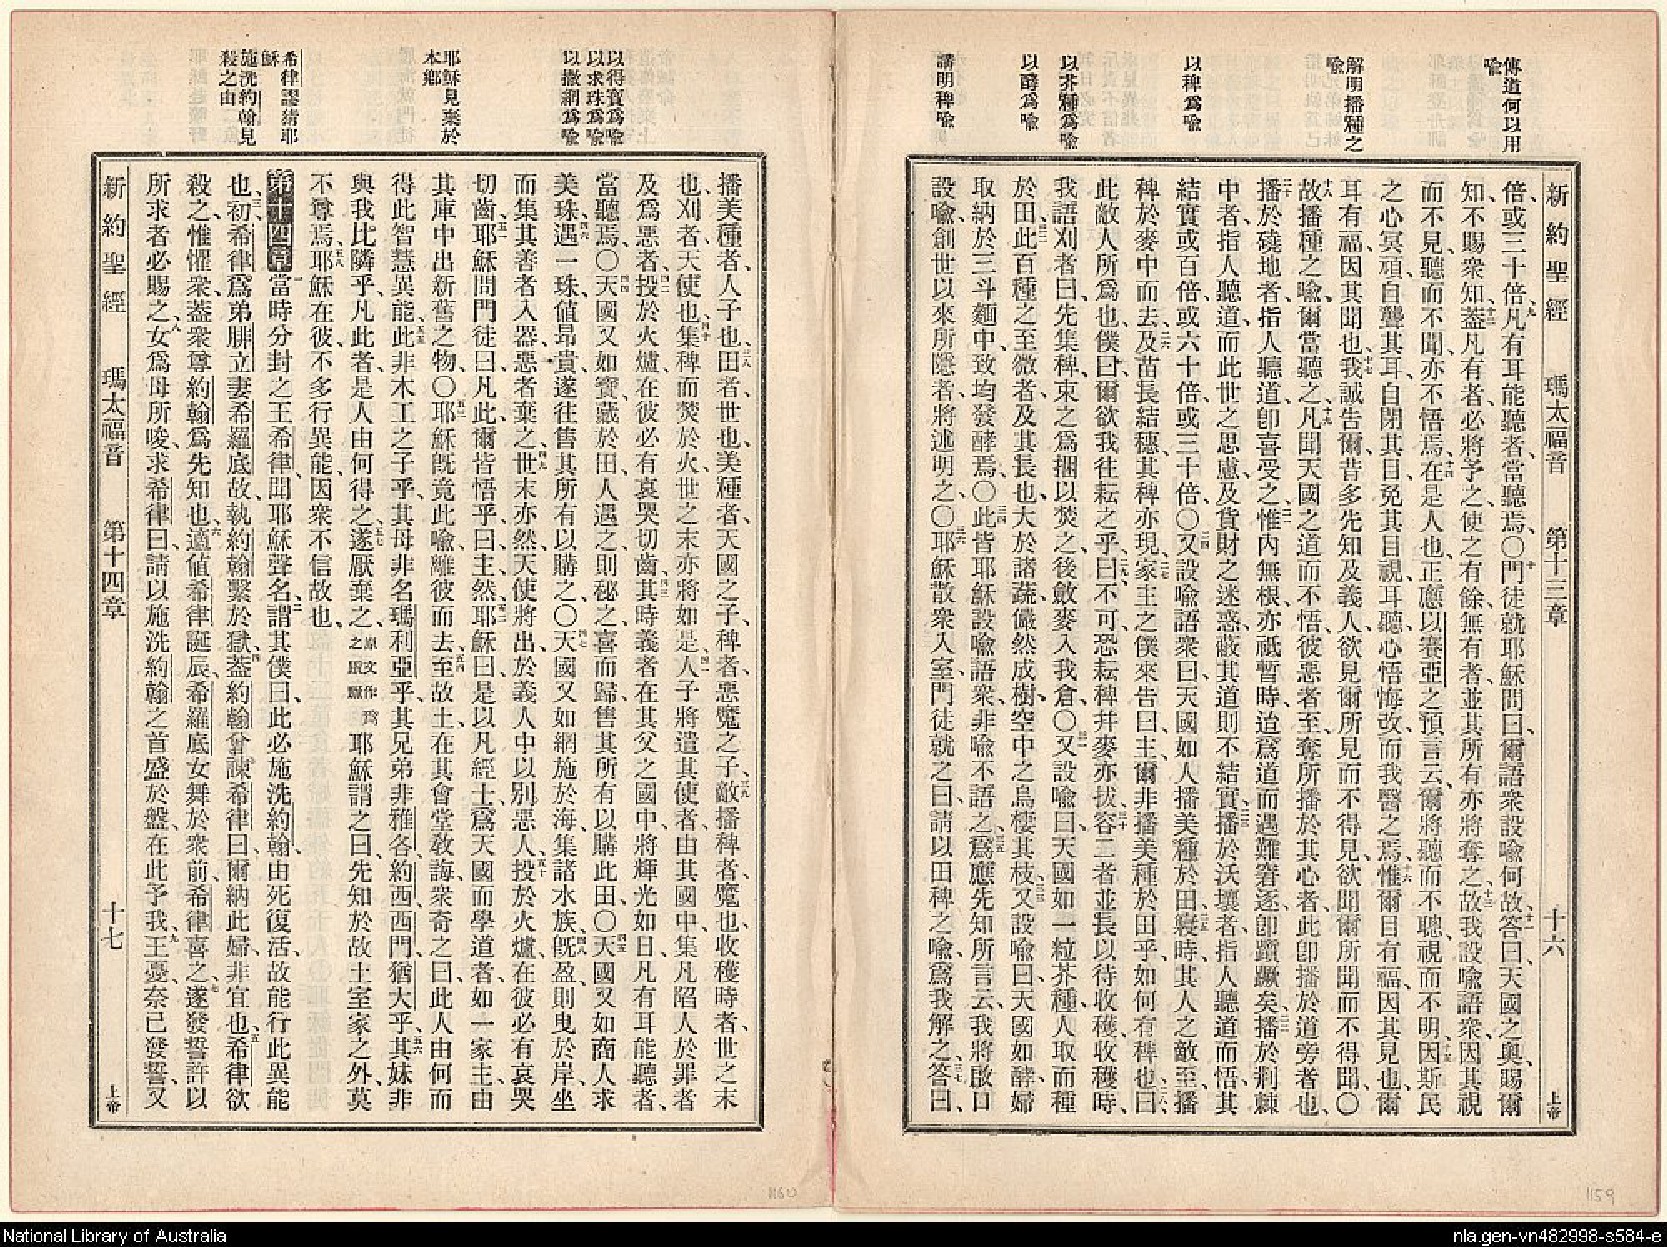 傳道何以用
喩
解明播種之
喩
以稗爲喩
以芥種爲喩
以酵爲喩
講明稗喩
新約聖經 瑪太福音 第十三章 十六 上帝
倍、或三十倍、凡有耳能聽者、當聽焉、〇門徒就耶穌問曰、爾語衆設喩何故、答曰、天國之奧、賜爾
知、不賜衆知、蓋凡有者、必將予之、使之有餘、無有者、並其所有亦將奪之、故我設喩語衆、因其視
而不見、聽而不聞、亦不悟焉、在是人也、正應以賽亞之預言云、爾將聽而不聰、視而不明、因斯民
之心冥頑、自聾其耳、自閉其目、免其目視、耳聽、心悟、悔改、而我醫之焉、惟爾目有福、因其見也、爾
耳有福、因其聞也、我誠告爾、昔多先知及義人、欲見爾所見而不得見、欲聞爾所聞而不得聞、〇
故播種之喩、爾當聽之、凡聞天國之道而不悟、彼惡者至、奪所播於其心者、此卽播於道旁者也、
播於磽地者、指人聽道、卽喜受之、惟內無根、亦祗暫時、迨爲道而遇難窘逐、卽躓蹶矣、播於荆棘
中者、指人聽道、而此世之思慮、及貨財之迷惑、蔽其道、則不結實、播於沃壤者、指人聽道而悟、其
結實或百倍、或六十倍、或三十倍、〇又設喩語衆曰、天國如人播美種於田、寢時、其人之敵至、播
稗於麥中而去、及苗長結穗、其稗亦現、家主之僕來告曰、主、爾非播美種於田乎、如何有稗也、曰、
此敵人所爲也、僕曰、爾欲我往耘之乎、曰、不可、恐耘稗幷麥亦拔、容二者並長、以待收穫、收穫時、
我語刈者曰、先集稗、束之爲捆以焚之、後斂麥入我倉、〇又設喩曰、天國如一粒芥種、人取而種
於田、此百種之至微者、及其長也、大於諸蔬、儼然成樹、空中之鳥棲其枝、又設喩曰、天國如酵、婦
取納於三斗麵中、致均發酵焉、〇此皆耶穌設喩語衆、非喩不語之、爲應先知所言云、我將啟口
設喩、創世以來所隱者、將述明之、〇耶穌散衆入室、門徒就之曰、請以田稗之喩、爲我解之、答曰、
以得寶爲喩
以求珠爲喩
以撒網爲喩
耶穌見棄於
本鄕
希律謬猜耶
穌
施洗約翰見
殺之由
播美種者、人子也、田者、世也、美種者、天國之子、稗者、惡魔之子、敵播稗者、魔也、收穫時者、世之末
也、刈者、天使也、集稗而焚於火、世之末亦將如是、人子將遣其使者、由其國中、集凡陷人於罪者、
及爲惡者、投於火爐、在彼必有哀哭切齒、其時義者在其父之國中、將輝光如日、凡有耳能聽者、
當聽焉、〇天國又如寶藏於田、人遇之則秘之、喜而歸、售其所有以購此田、〇天國又如商人求
美珠、遇一珠値昂貴、遂往售其所有以購之、〇天國又如網施於海、集諸水族、旣盈則曳於岸、坐
而集其善者入器、惡者棄之、世末亦然、天使將出、於義人中以別惡人、投於火爐、在彼必有哀哭
切齒、耶穌問門徒曰、凡此爾皆悟乎、曰、主、然、耶穌曰、是以凡經士爲天國而學道者、如一家主、由
其庫中出新舊之物、〇耶穌旣竟此喩、離彼而去、至故土、在其會堂敎誨、衆奇之曰、此人由何而
得此智慧異能、此非木工之子乎、其母非名瑪利亞乎、其兄弟非雅各約西西門猶大乎、其妹非
與我比隣乎、凡此者、是人由何得之、遂厭棄之、原文作窵之取躓 耶穌謂之曰、先知於故土室家之外、莫
不尊焉、耶穌在彼不多行異能、因衆不信故也、
第十四章 當時分封之王希律、聞耶穌聲名、謂其僕曰、此必施洗約翰由死復活、故能行此異能
也、初希律爲弟腓立妻希羅底故、執約翰繫於獄、蓋約翰曾諫希律曰、爾納此婦、非宜也、希律欲
殺之、惟懼衆、蓋衆尊約翰爲先知也、適値希律誕辰、希羅底女舞於衆前、希律喜之、遂發誓許以
所求者必賜之、女爲母所唆、求希律曰、請以施洗約翰之首、盛於盤、在此予我、王憂、奈已發誓、又
新約聖經 瑪太福音 第十四章 十七 上帝
1160
1159
National Library of Australia
nla.gen-vn482998-s584-e